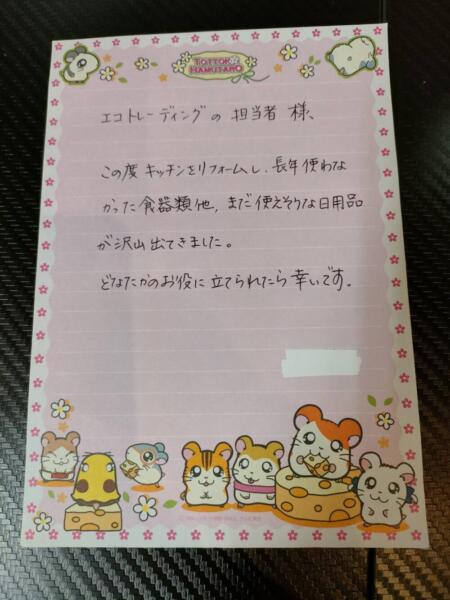 TOTTOKO
HAMUTARO
エコトレーディングの担当者 様、
この度 キッチンをリフォームし、長年使わな
かった食器類他、まだ使えそうな日用品
が沢山出てきました。
どなたかのお役に立てられたら幸いです。